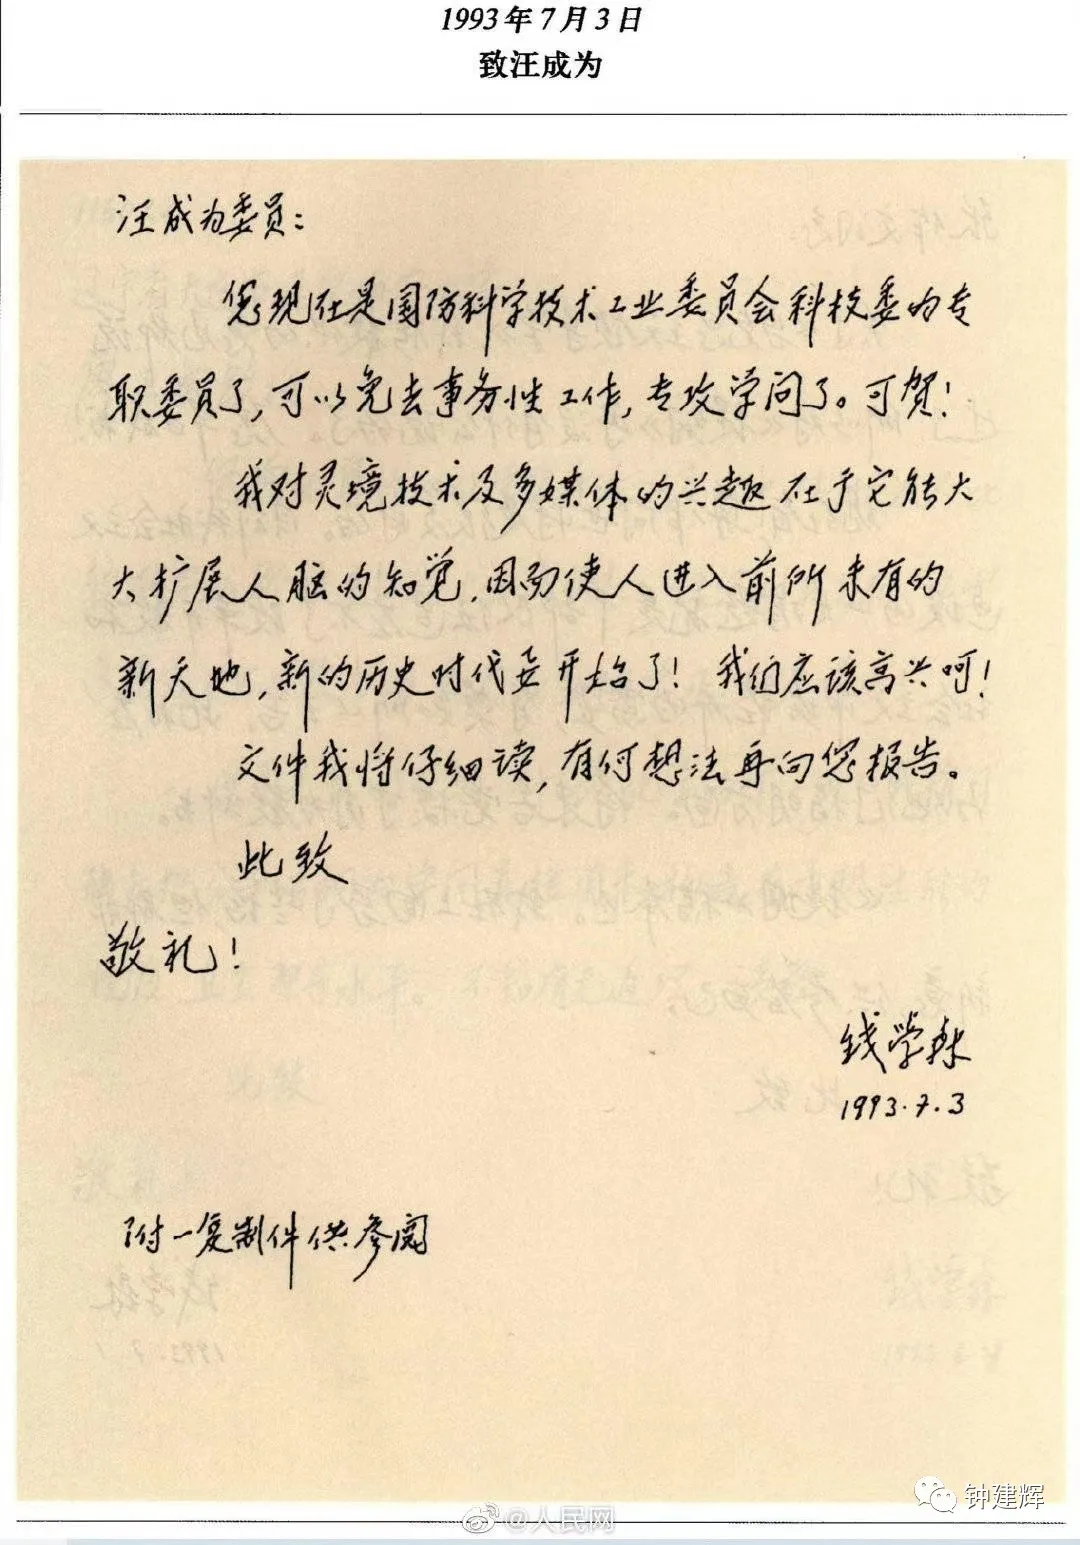 1993年7月3日
致汪成为
汪成为委员：
您现在是国防科学技术工业委员会科技委的专
职委员了，可以免去事务性工作，专攻学问了。可贺！
我对灵境技术及多媒体的兴趣在于它能大
大扩展人脑的知觉，因而使人进入前所未有的
新天地，新的历史时代要开始了！我们应该高兴呵！
文件我将仔细读，有何想法再向您报告。
此致
敬礼！
钱学森
1993.7.3
附一复制件供参阅
钟建辉
@人民网